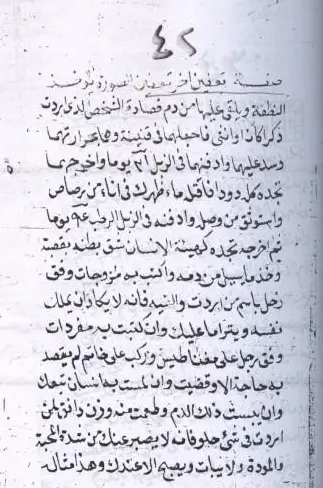 ٤٢
صفة تعفين اخر تعفين الصورة تؤخذ
النطفة ويلقى عليها من دم فصادة الشخص الذى اردت
ذكرا كان او انثى فاجعلها فى قنينة وهما بحرارتهما
وسد عليها وادفنها فى الزبل يوما واخرجهما
تجده كله دودا فاقلى ماء ظهرك فى اناء من رصاص
واستوثق من وصله وادفنه فى الزبل الرطب يوما
ثم اخرجه تجده كهيئة الانسان شق بطنه بقصبة
وخذ ما يسيل من دمه واكتب به مزوجات وفق
رجل باسم من اردت والقيه فانه لا يكاد ان يملك
نفسه ويتراما عليك وان كتبت به مفردات
وفق رجل على مغناطيس وركب على خاتم لم يقصد
به حاجة الا وقضيت وان لمست به انسان تبعك
وان يبست ذلك الدم وطعمت منه وزن دانق لمن
اردت فى شئ حلو فانه لا يصبر عنك من شدة المحبة
والمودة ولا يبات ويصبح الا عندك وهذا مثاله